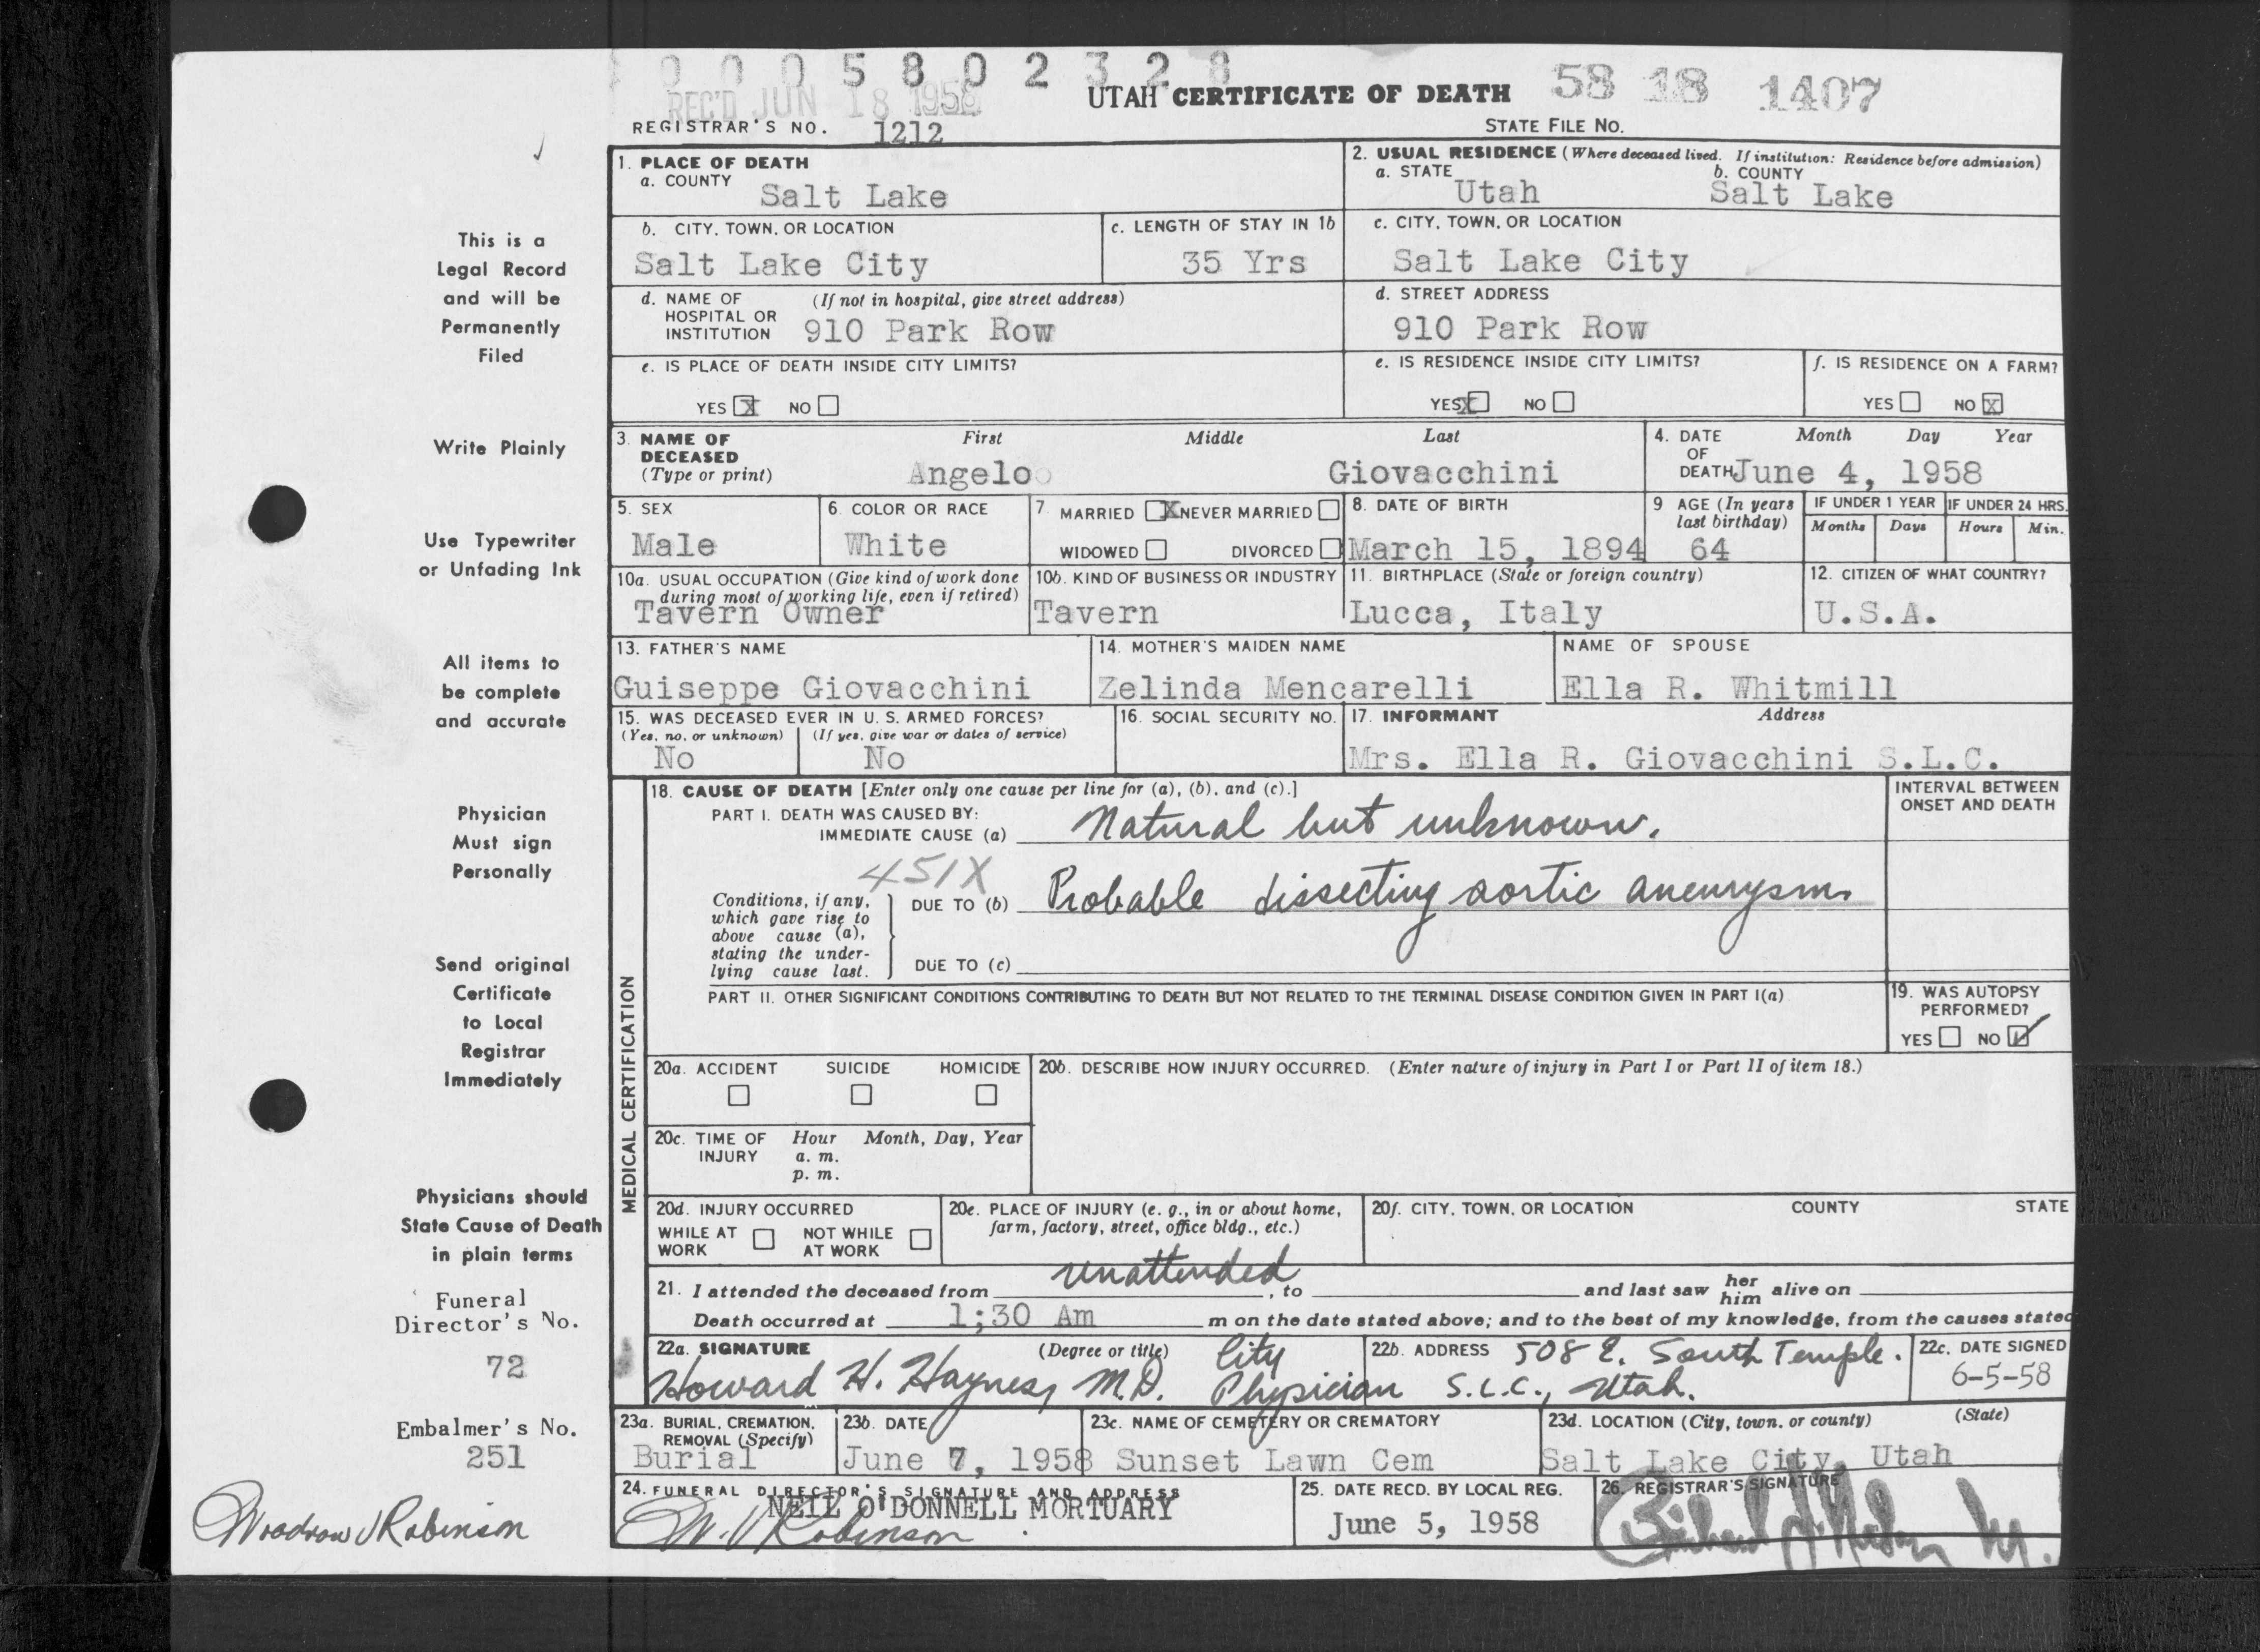 0 0 0 5 8 0 2 3 2 8
REC'D JUN 18 1958
UTAH CERTIFICATE OF DEATH 58 18 1407
REGISTRAR'S NO. 1212 STATE FILE NO.
This is a
Legal Record
and will be
Permanently
Filed
Write Plainly
Use Typewriter
or Unfading Ink
All items to
be complete
and accurate
Physician
Must sign
Personally
Send original
Certificate
to Local
Registrar
Immediately
Physicians should
State Cause of Death
in plain terms
Funeral
Director's No.
72
Embalmer's No.
251
Woodrow V Robinson
1. PLACE OF DEATH
a. COUNTY
Salt Lake
2. USUAL RESIDENCE (Where deceased lived. If institution: Residence before admission)
a. STATE b. COUNTY
Utah Salt Lake
b. CITY, TOWN, OR LOCATION
Salt Lake City
c. LENGTH OF STAY IN 1b
35 Yrs
c. CITY, TOWN, OR LOCATION
Salt Lake City
d. NAME OF (If not in hospital, give street address)
HOSPITAL OR
INSTITUTION 910 Park Row
d. STREET ADDRESS
910 Park Row
e. IS PLACE OF DEATH INSIDE CITY LIMITS?
YES X NO
e. IS RESIDENCE INSIDE CITY LIMITS?
YES X NO
f. IS RESIDENCE ON A FARM?
YES NO X
3. NAME OF First Middle Last
DECEASED
(Type or print) Angelo Giovacchini
4. DATE Month Day Year
OF
DEATH June 4, 1958
5. SEX
Male
6. COLOR OR RACE
White
7. MARRIED X NEVER MARRIED
WIDOWED DIVORCED
8. DATE OF BIRTH
March 15, 1894
9 AGE (In years
last birthday)
64
IF UNDER 1 YEAR
Months Days
IF UNDER 24 HRS.
Hours Min.
10a. USUAL OCCUPATION (Give kind of work done
during most of working life, even if retired)
Tavern Owner
10b. KIND OF BUSINESS OR INDUSTRY
Tavern
11. BIRTHPLACE (State or foreign country)
Lucca, Italy
12. CITIZEN OF WHAT COUNTRY?
U.S.A.
13. FATHER'S NAME
Guiseppe Giovacchini
14. MOTHER'S MAIDEN NAME
Zelinda Mencarelli
NAME OF SPOUSE
Ella R. Whitmill
15. WAS DECEASED EVER IN U. S. ARMED FORCES?
(Yes, no, or unknown) (If yes, give war or dates of service)
No No
16. SOCIAL SECURITY NO.
17. INFORMANT Address
Mrs. Ella R. Giovacchini S.L.C.
MEDICAL CERTIFICATION
18. CAUSE OF DEATH [Enter only one cause per line for (a), (b), and (c).]
PART I. DEATH WAS CAUSED BY:
IMMEDIATE CAUSE (a) Natural but unknown.
451X
Conditions, if any,
which gave rise to
above cause (a),
stating the under-
lying cause last.
DUE TO (b) Probable dissecting aortic aneurysm
DUE TO (c)
INTERVAL BETWEEN
ONSET AND DEATH
PART II. OTHER SIGNIFICANT CONDITIONS CONTRIBUTING TO DEATH BUT NOT RELATED TO THE TERMINAL DISEASE CONDITION GIVEN IN PART I(a)
19. WAS AUTOPSY
PERFORMED?
YES NO
20a. ACCIDENT SUICIDE HOMICIDE
20b. DESCRIBE HOW INJURY OCCURRED. (Enter nature of injury in Part I or Part II of item 18.)
20c. TIME OF Hour Month, Day, Year
INJURY a. m.
p. m.
20d. INJURY OCCURRED
WHILE AT NOT WHILE
WORK AT WORK
20e. PLACE OF INJURY (e. g., in or about home,
farm, factory, street, office bldg., etc.)
20f. CITY, TOWN, OR LOCATION COUNTY STATE
21. I attended the deceased from unattended, to and last saw her him alive on
Death occurred at 1;30 Am m on the date stated above; and to the best of my knowledge, from the causes stated
22a. SIGNATURE (Degree or title)
Howard H. Haynes, M.D. City Physician
22b. ADDRESS 508 E. South Temple.
S.L.C., Utah.
22c. DATE SIGNED
6-5-58
23a. BURIAL, CREMATION,
REMOVAL (Specify)
Burial
23b. DATE
June 7, 1958
23c. NAME OF CEMETERY OR CREMATORY
Sunset Lawn Cem
23d. LOCATION (City, town, or county) (State)
Salt Lake City, Utah
24. FUNERAL DIRECTOR'S SIGNATURE AND ADDRESS
NEIL O'DONNELL MORTUARY
W. V Robinson
25. DATE RECD. BY LOCAL REG.
June 5, 1958
26. REGISTRAR'S SIGNATURE